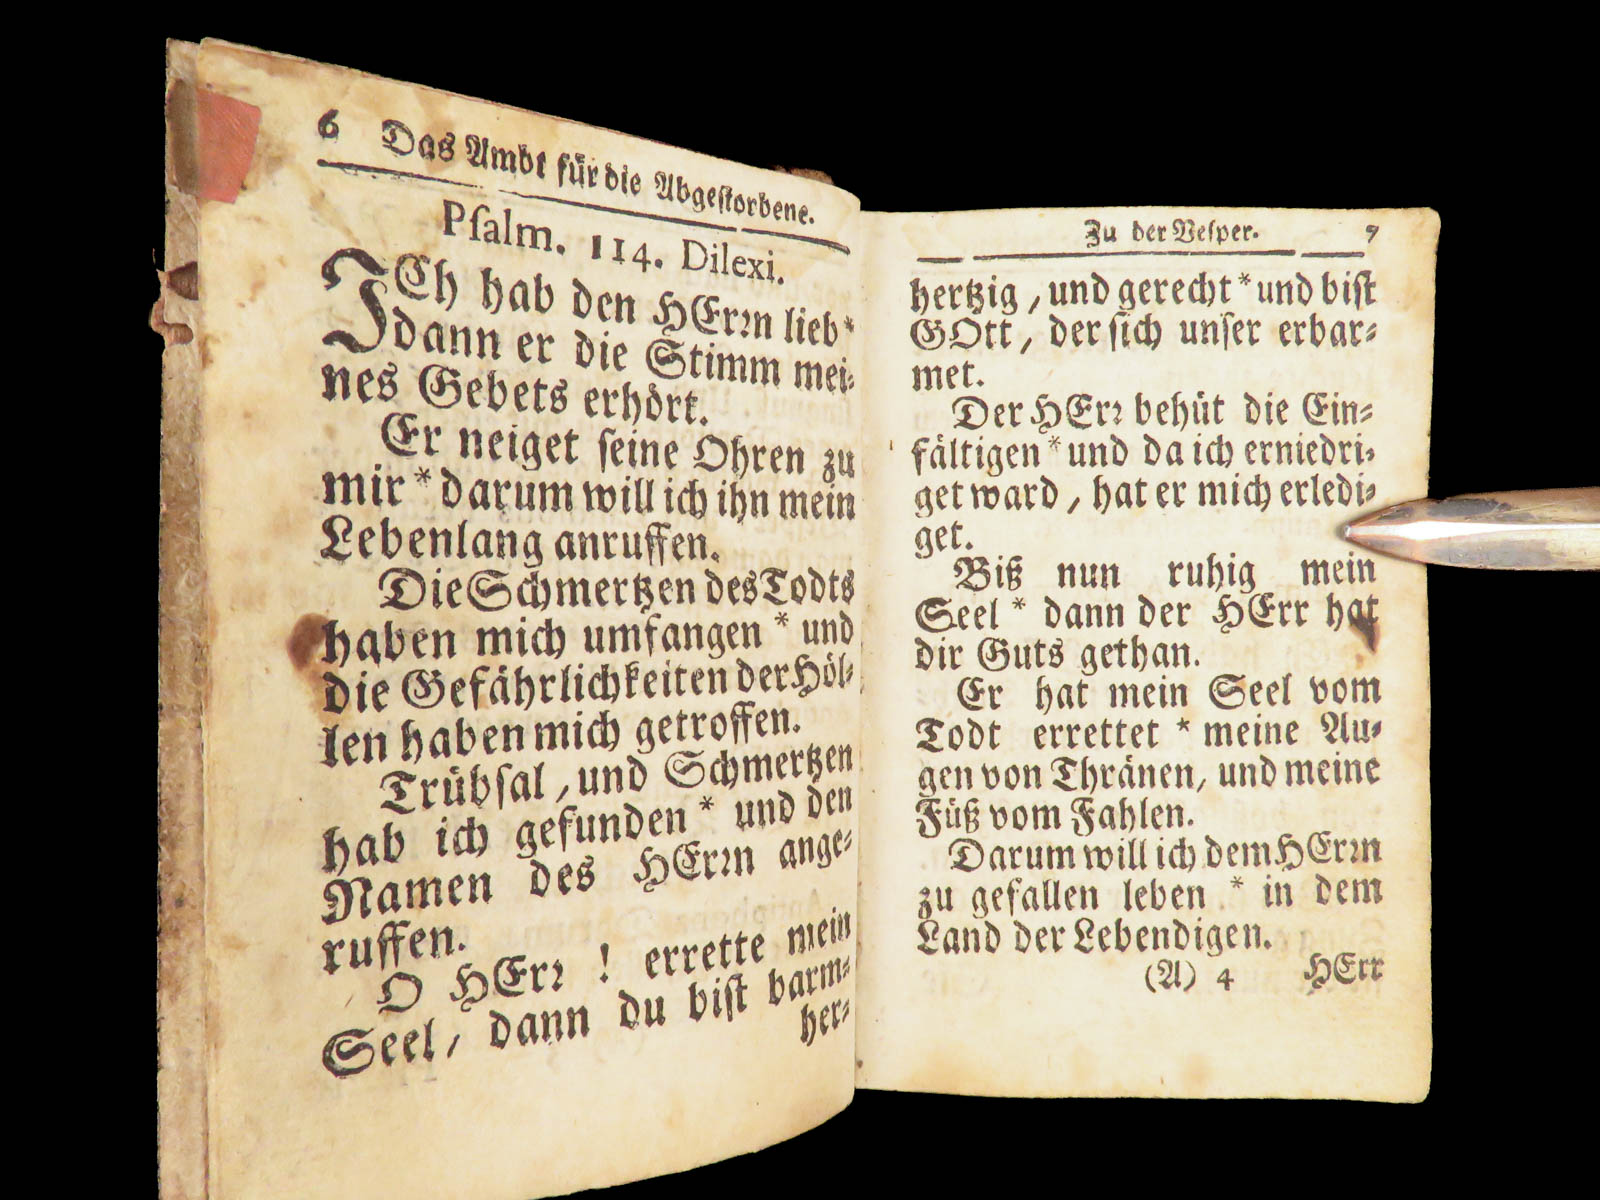 6 Das Ambt für die Abgestorbene.
Psalm. 114. Dilexi.
ICh hab den HErꝛn lieb*
dann er die Stimm mei⸗
nes Gebets erhört.
Er neiget seine Ohren zu
mir * darum will ich ihn mein
Lebenlang anruffen.
Die Schmertzen des Todts
haben mich umfangen * und
die Gefährlichkeiten der Höl⸗
len haben mich getroffen.
Trübsal, und Schmertzen
hab ich gefunden * und den
Namen des HErꝛn ange⸗
ruffen.
O HErꝛ ! errette mein
Seel, dann du bist barm⸗
her⸗
Zu der Vesper. 7
hertzig, und gerecht * und bist
GOtt, der sich unser erbar⸗
met.
Der HErꝛ behüt die Ein⸗
fältigen * und da ich erniedri⸗
get ward, hat er mich erledi⸗
get.
Biß nun ruhig mein
Seel * dann der HErr hat
dir Guts gethan.
Er hat mein Seel vom
Todt errettet * meine Au⸗
gen von Thränen, und meine
Füß vom Fahlen.
Darum will ich dem HErꝛn
zu gefallen leben * in dem
Land der Lebendigen.
(A) 4 HErr